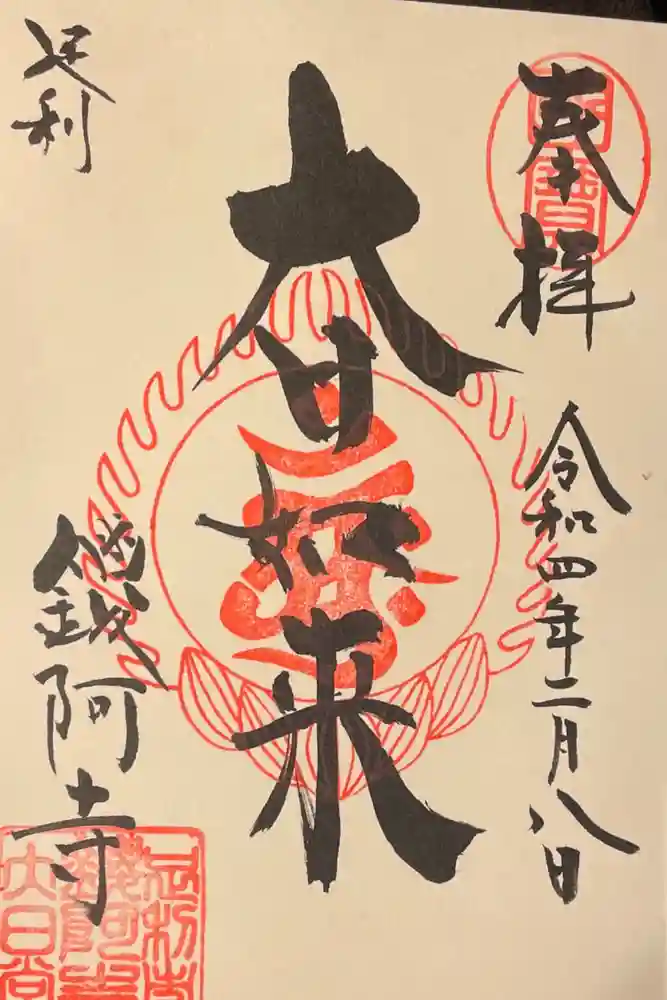 奉拝
令和四年二月八日
大日如来
足利
鑁阿寺
足利
鑁阿寺
大日堂